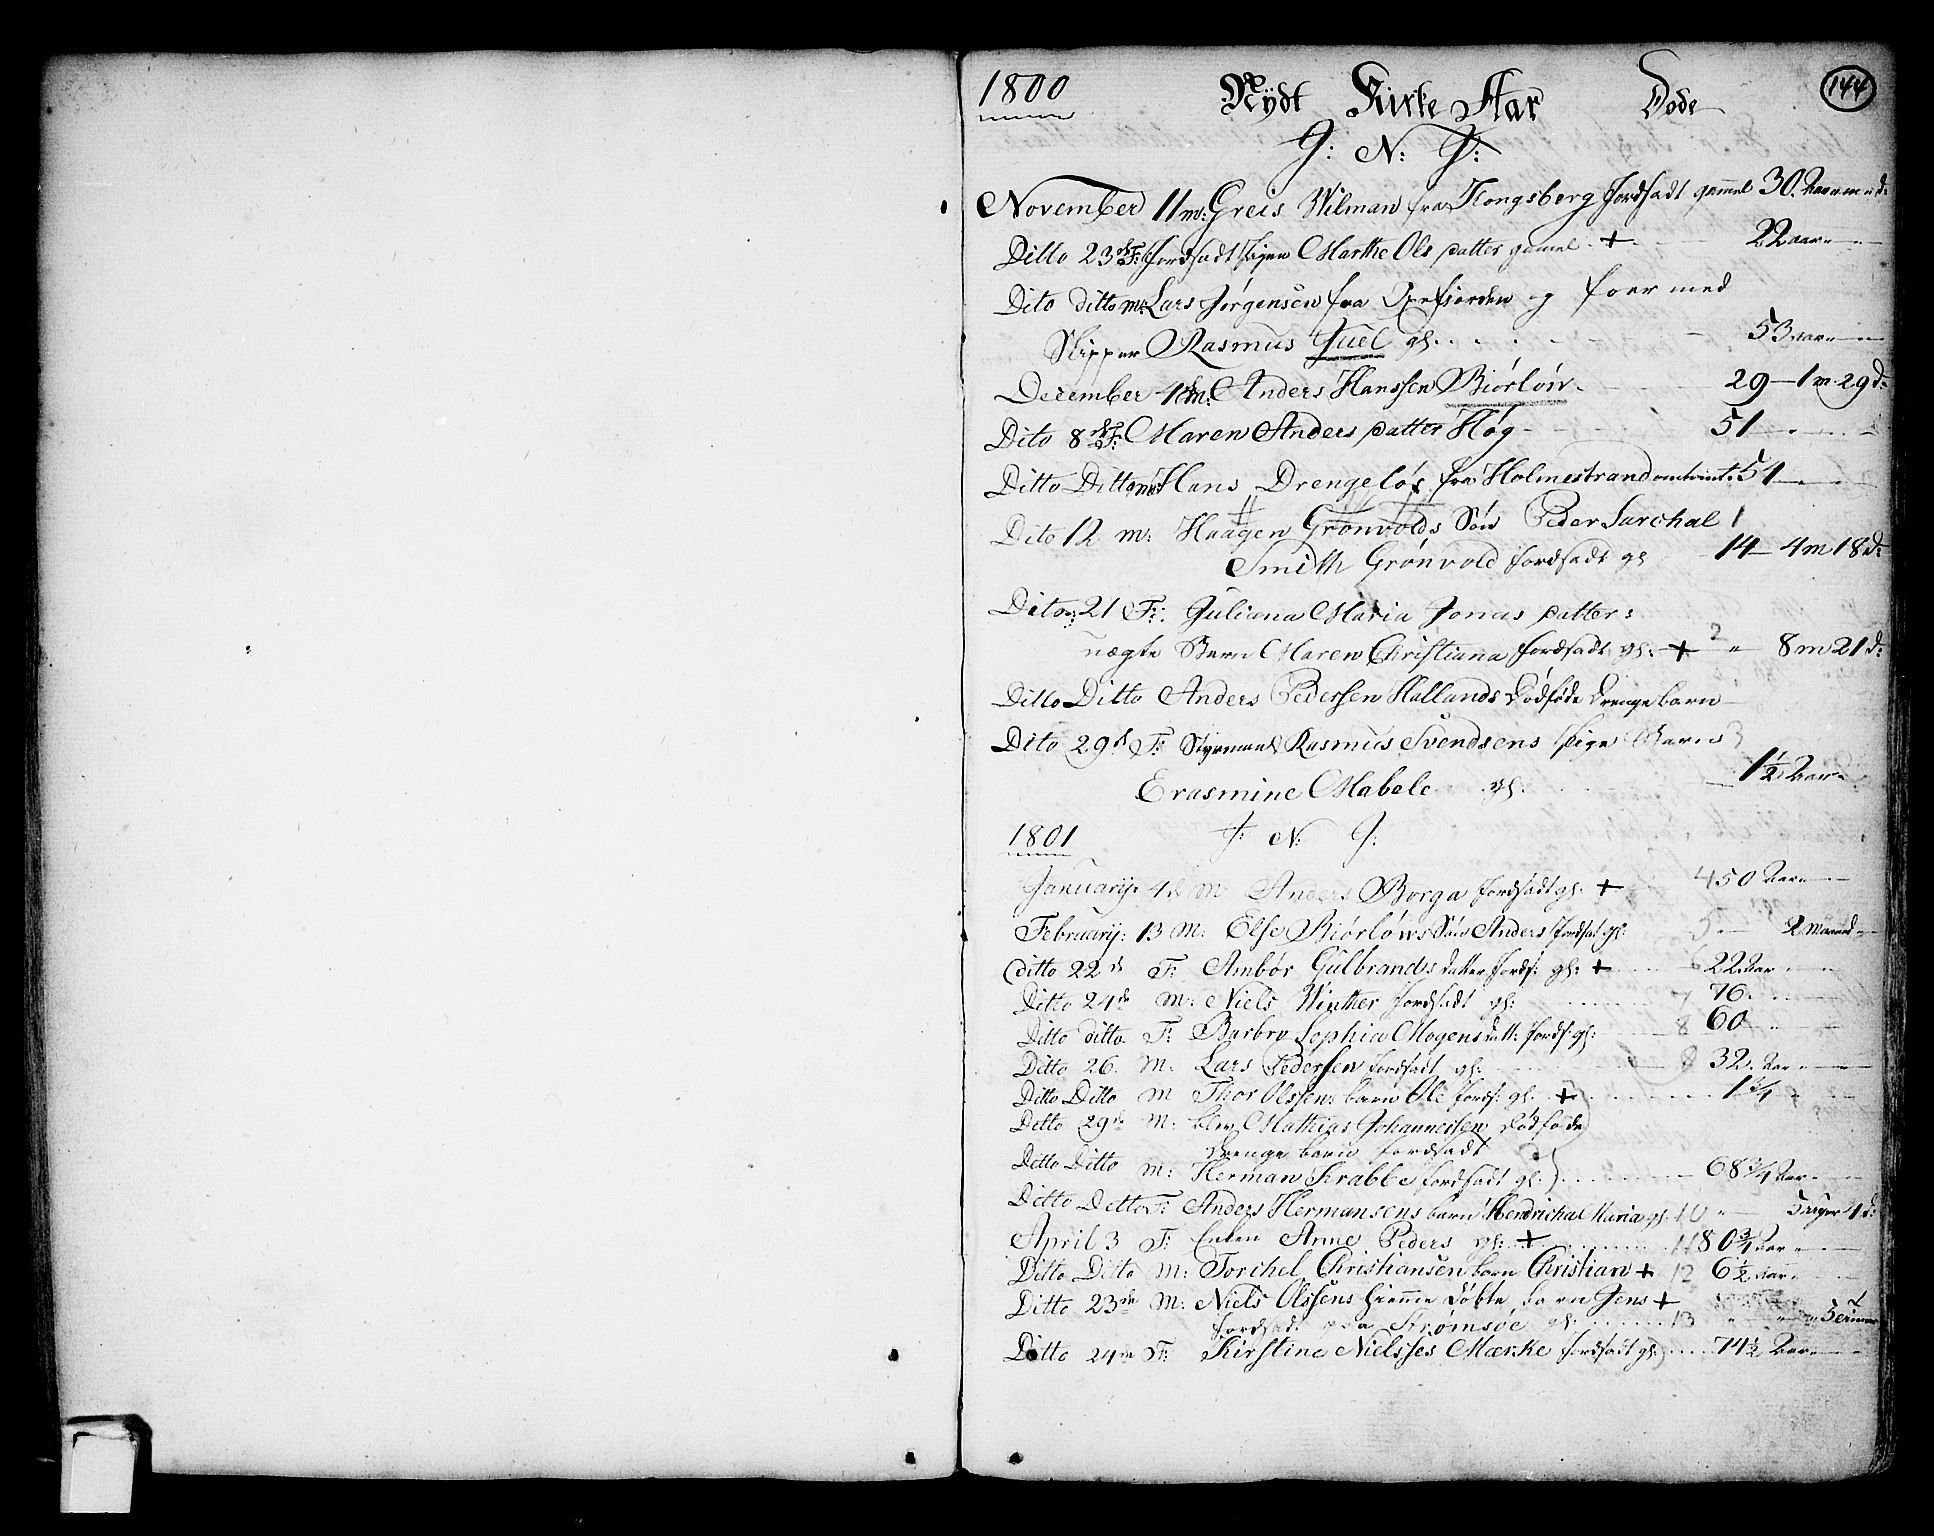 1800 Nÿdt Kirke Aar Døde 144
J: N: J:
November 11 m: Greis Wilman fra Kongsberg fordsadt gammel 30. Aar m d:
Ditto 23de F: fordsadt Pigen Marthe Ols Datter gamel + 22 aar
Dito ditto m: Lars Jørgensen fra og foer med
Skipper Rasmus Juel gl. 53 aar
December 4de m: Anders Hanssen Biørløw 29 – 1 m. 29 d:
Dito 8de F: Maren Anders Datter Høg 51
Ditto Ditto m: Hans Drengeløs fra Holmestrand omtrint. 51
Dito 12 m: Haagen Grønvolds Søn Peder Surchal 1
Smith Grønvold fordsadt gl 14 – 4 m 18 d:
Dito: 21 F: Juliana Maria Jonas Datter:
uægte Barn Maren Christiana fordsadt gl: + 2 8 m 21 d:
Ditto Ditto Anders Pedersen Hallands Dødføde Drenge barn
Dito 29d F: Styrmand Rasmus Svendsens Pige Barn 3
Erasmine Mabele gl: 1 1/2 Aar
1801 J: N: J:
Januarij: 4de M Anders Borga fordsadt gl: + 4 50 Aar
Februarij: 13 M: Else Biørløws Søn Anders fordsat gl: 5 2 maaned
ditto 22d F: Ambør Gulbrands datter fords: gl: + 6 22 Aar
Ditto 24de M: Niels Winther fordsadt gl: 7 76
Ditto ditto F: Barbro Sophia Mogens datt: fords: gl: 8 60
Ditto 26. M. Lars Pedersen fordsadt gl: 9 32. Aar
Ditto Ditto M Thor Olssens barn Ole fords: gl. + 1 3/4
Ditto 29de M: blev Mathias Johannessen Dødføde
Drenge barn fordsadt
Ditto Ditto M: Herman Krabbe fordsadt gl: 68 3/4 Aar
Ditto Detto F: Anders Hermansens barn Hendricha Maria gl. 10 4 d:
April 3 F: Enken Anne Peders gl: + 11 80 3/4 Aar
Ditto Ditto M: Torchel Christiansen barn Christian + 12 6 1/2 Aar
Ditto 23de M: Niels Olssens hiemme Døbte barn Jens +
fordsadt paa Strømsøe gl: 13
Ditto 24de F: Kirstine Nielsses Mærke fordsadt gl: 74 1/2 Aar